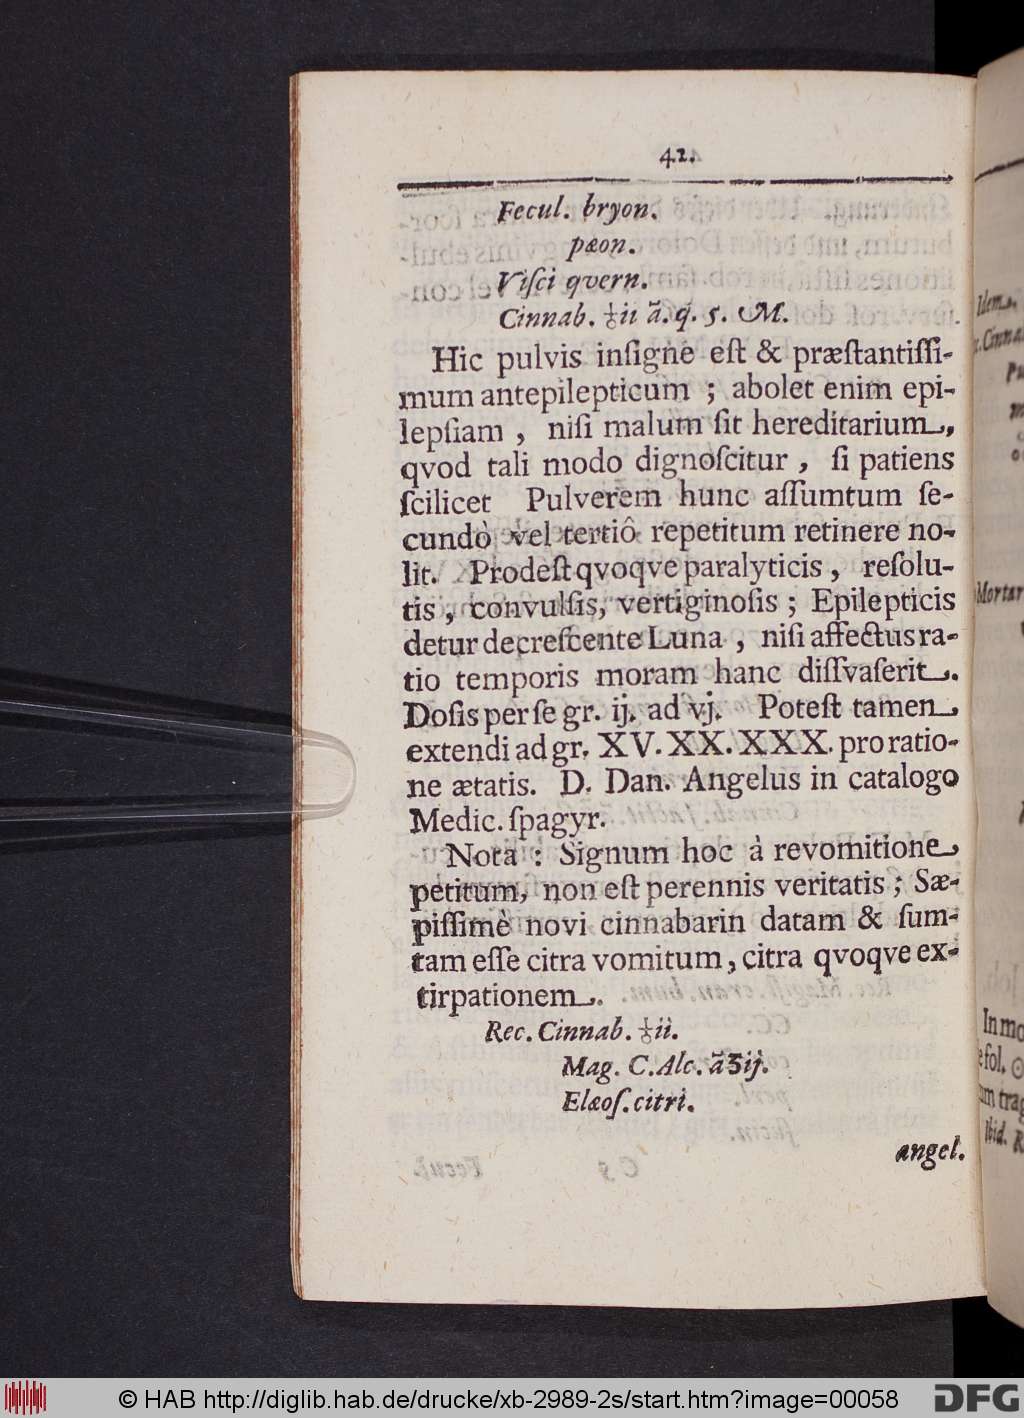 42.
Fecul. bryon.
pæon.
Viſci qvern.
Cinnab. ♁ii ã. q̃. s. M.
Hic pulvis inſigne eſt & præſtantiſſi-
mum antepilepticum ; abolet enim epi-
lepſiam , niſi malum ſit hereditarium,
qvod tali modo dignoſcitur , ſi patiens
ſcilicet Pulverem hunc aſſumtum ſe-
cundò vel tertiô repetitum retinere no-
lit. Prodeſt qvoqve paralyticis , reſolu-
tis , convulſis, vertiginoſis ; Epilepticis
detur decreſcente Luna , niſi affectus ra-
tio temporis moram hanc diſſvaſerit.
Doſis per ſe gr. ij. ad vj. Poteſt tamen
extendi ad gr. XV. XX. XXX. pro ratio-
ne ætatis. D. Dan. Angelus in catalogo
Medic. ſpagyr.
Nota : Signum hoc à revomitione
petitum, non eſt perennis veritatis ; Sæ-
piſſimè novi cinnabarin datam & ſum-
tam eſſe citra vomitum, citra qvoqve ex-
tirpationem.
Rec. Cinnab. ♁ii.
Mag. C. Alc. ãʒij.
Elæoſ. citri.
angel.
Idem
Cinna
Mortar
In mo
fol. ☉
um trag
Ibid. R
© HAB http://diglib.hab.de/drucke/xb-2989-2s/start.htm?image=00058
DFG